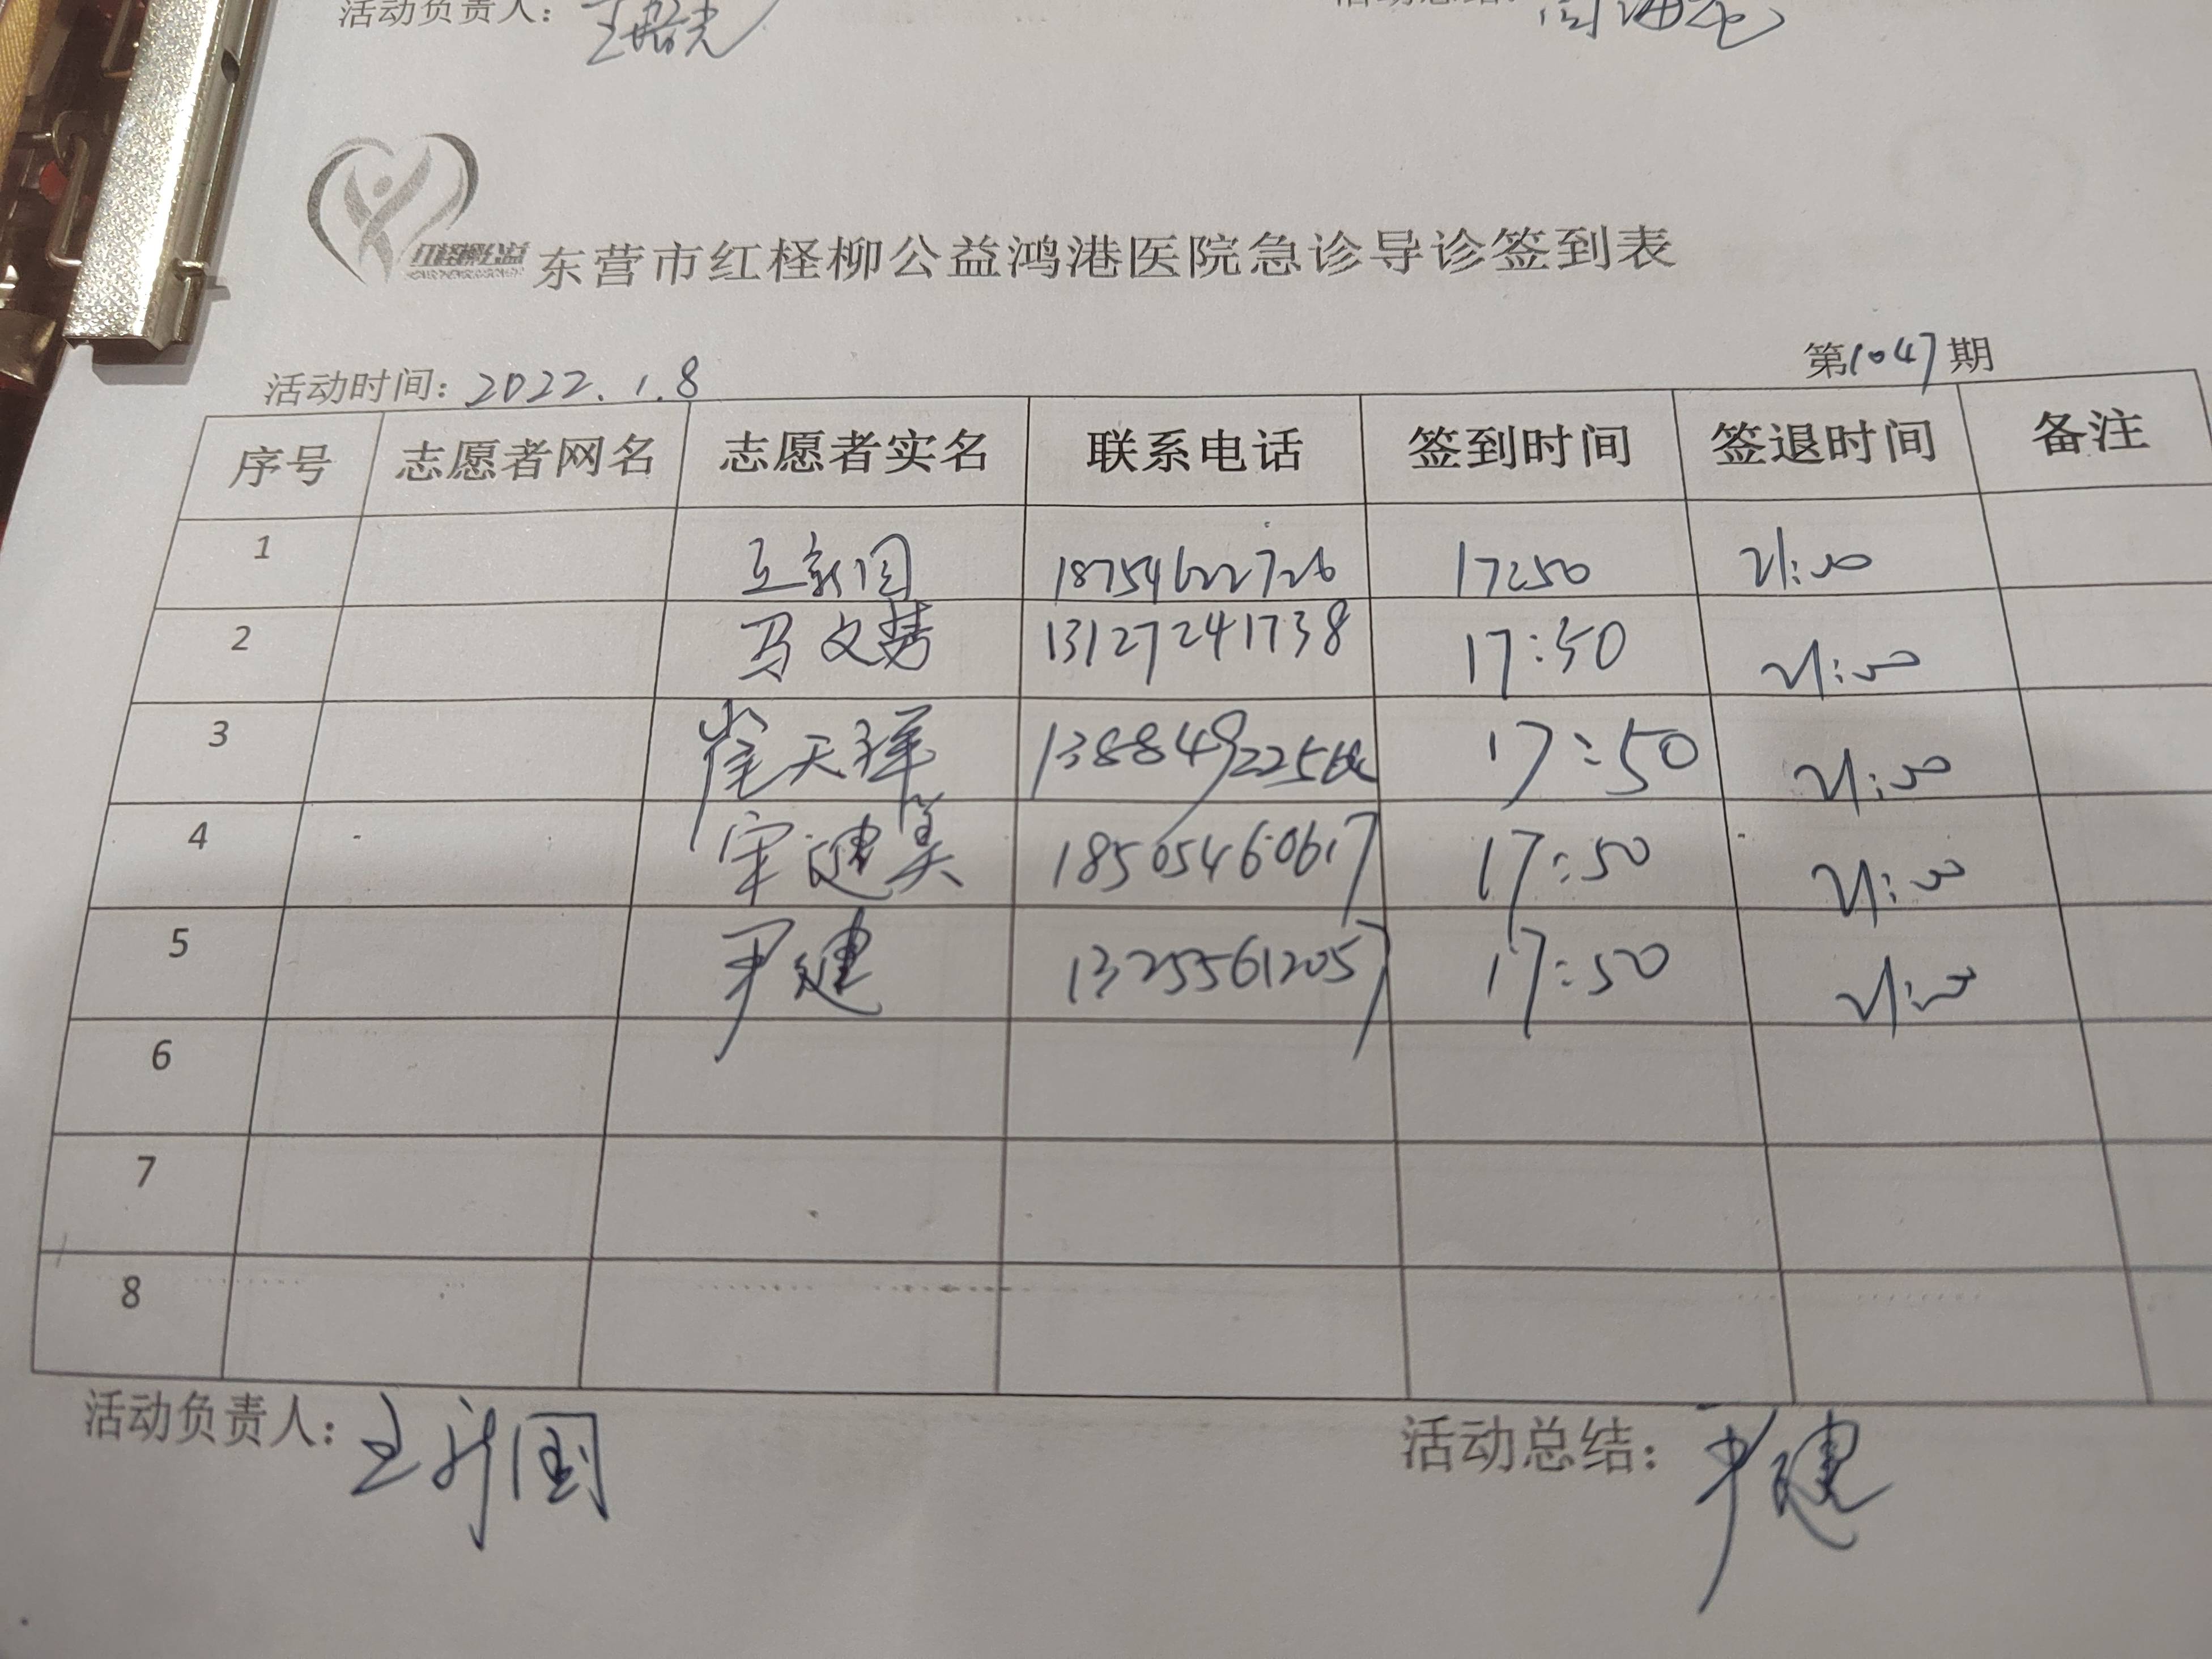 活动负责人：
活动总结：
红柽柳公益
东营市红柽柳公益鸿港医院急诊导诊签到表
活动时间：2022.1.8 第1047期
序号 志愿者网名 志愿者实名 联系电话 签到时间 签退时间 备注
1 王新国 18754622726 17:50 21:00
2 马文梦 13127241738 17:50 21:00
3 崔天祥 17:50 21:00
4 宋建美 18505460617 17:50 21:00
5 尹建 13255612057 17:50 21:00
6
7
8
活动负责人：王新国 活动总结：尹建